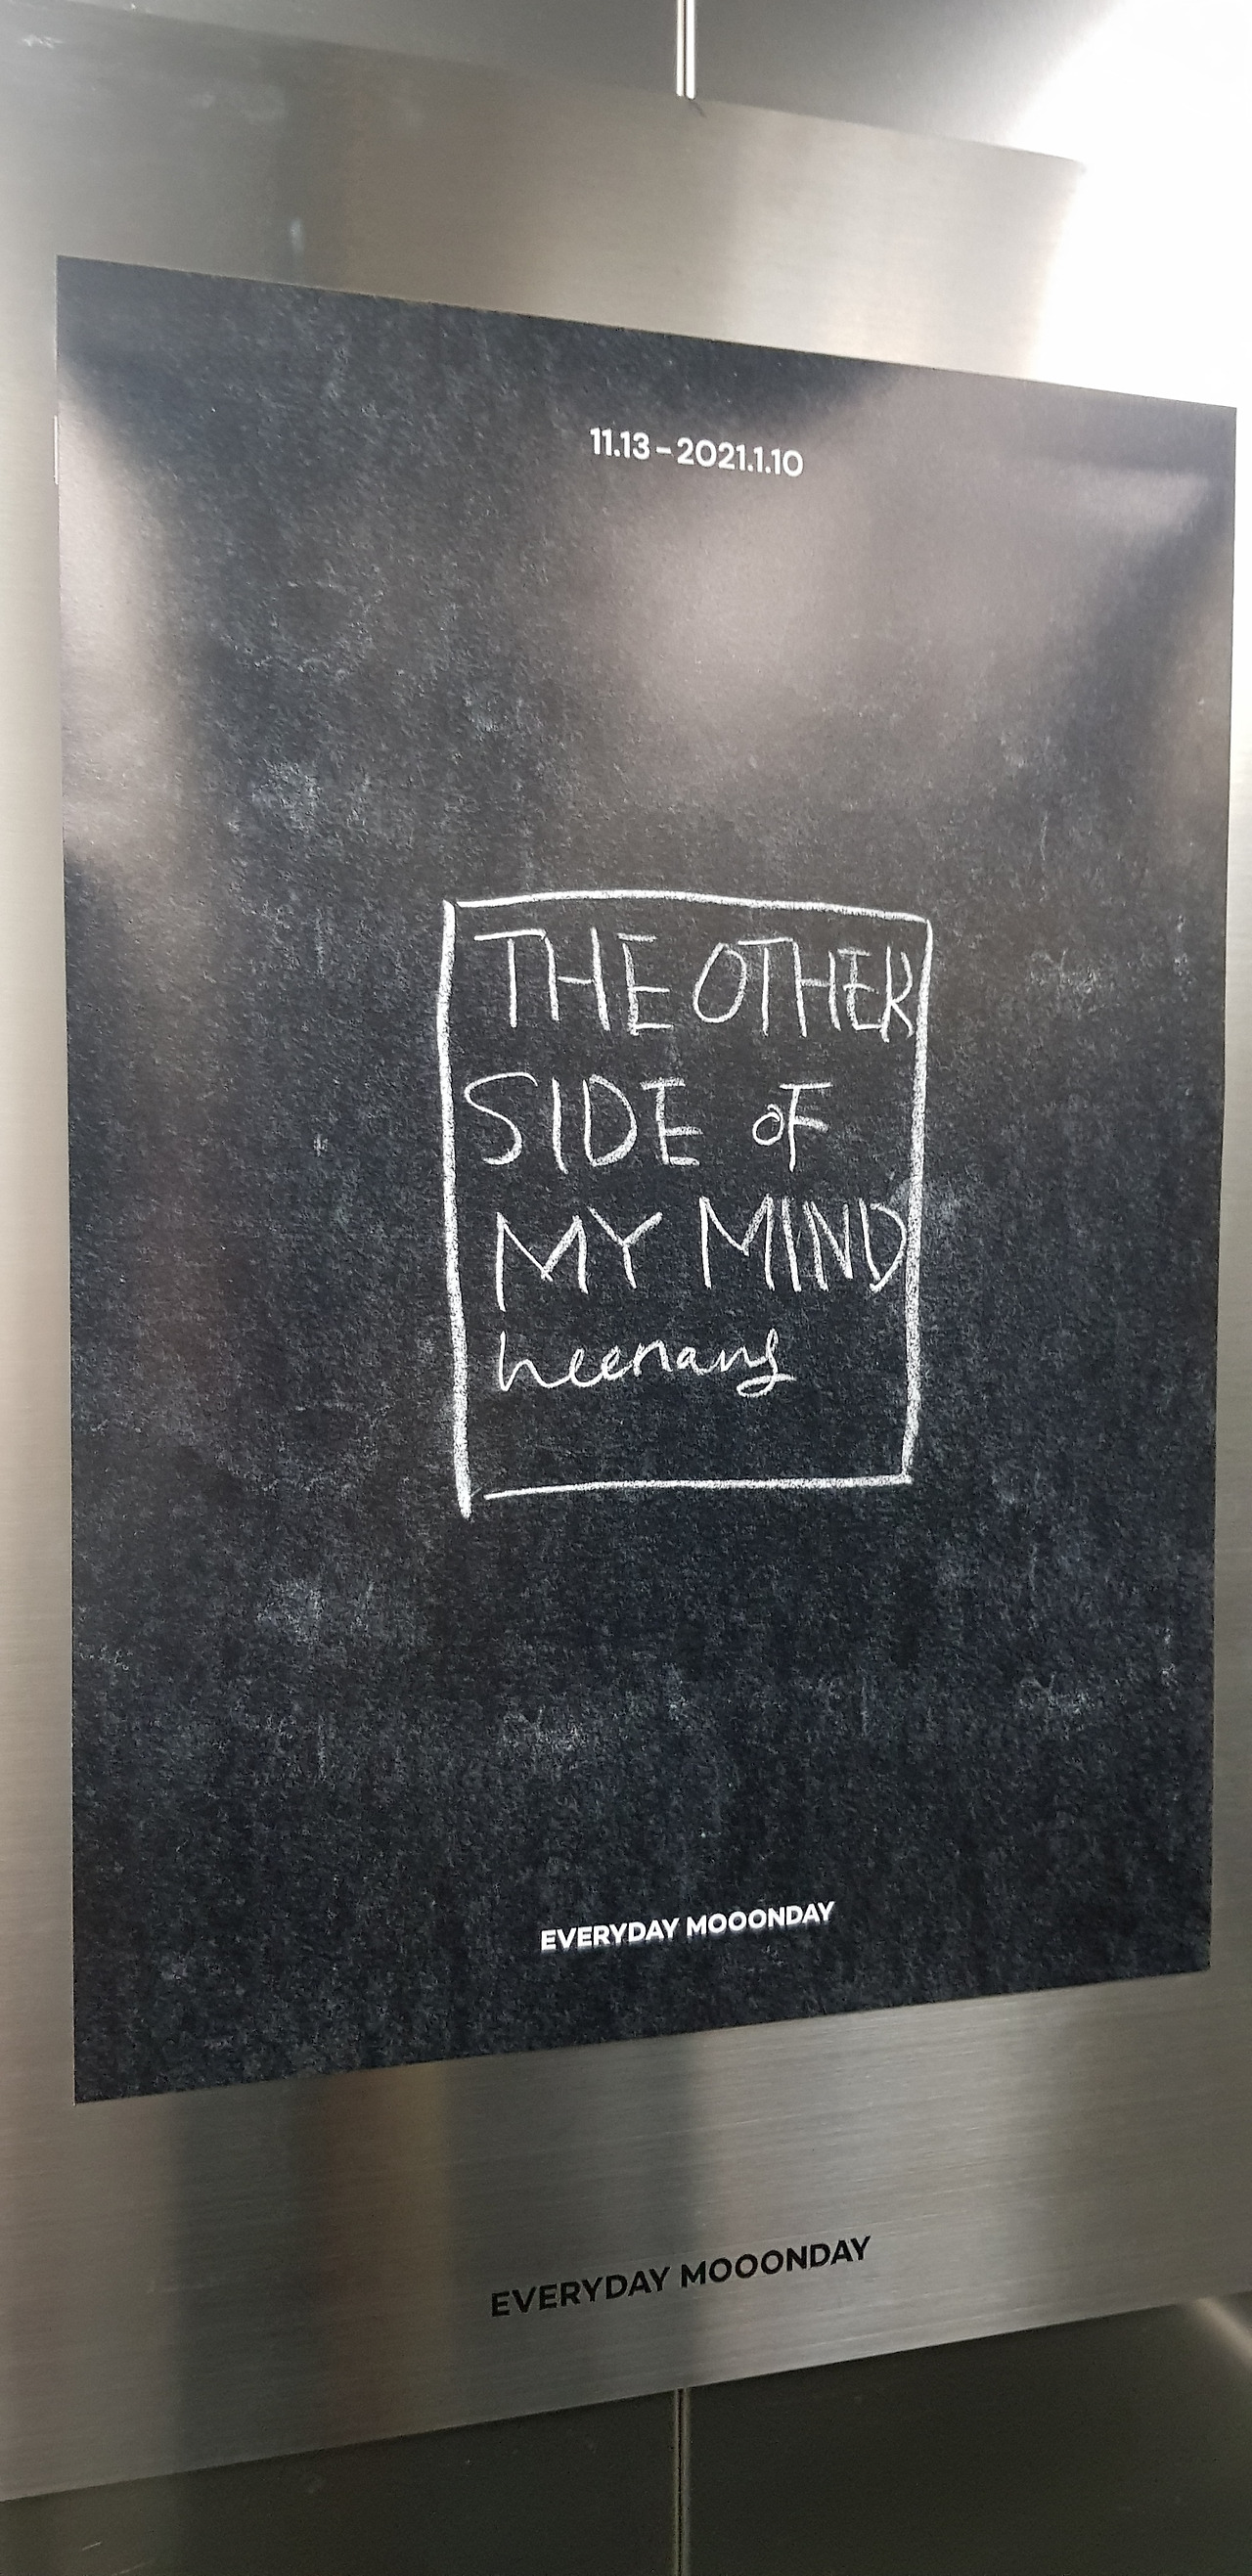 11.13 – 2021.1.10
THE OTHER
SIDE OF
MY MIND
heenang
EVERYDAY MOOONDAY
EVERYDAY MOOONDAY